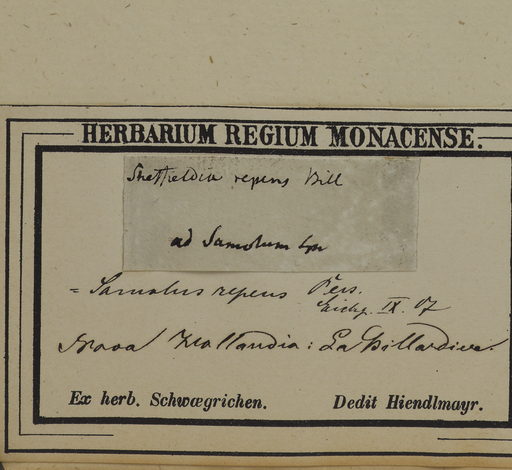 HERBARIUM REGIUM MONACENSE.
Sheffieldia repens Bill
ad Samolum
= Samolus repens Pers.
IX. 07
Nova Hollandia: La Billardiere.
Ex herb. Schwægrichen. Dedit Hiendlmayr.